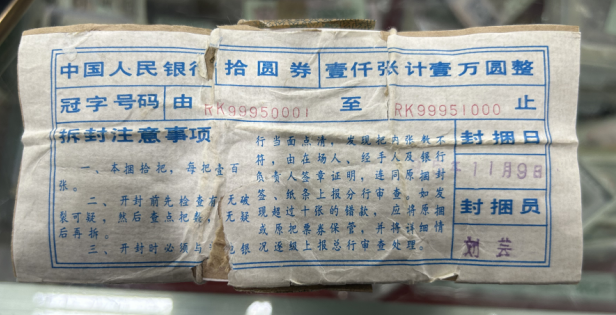 中国人民银行 拾圆券 壹仟张计壹万圆整
冠字号码 由 RK99950001 至 RK99951000 止
拆封注意事项
一、本捆拾把，每把壹百
张。
二、开封前先检查有无破
裂可疑，然后查点把数，无疑
后再拆。
三、开封时必须与
银
行当面点清，发现把内张数不
符，由在场人、经手人及银行
负责人签章证明，连同原捆封
签、纸条上报分行审查。如发
现超过十张的错款，应将原捆
或原把票券保管，并将详细情
况逐级上报总行审查处理。
封捆日
11月9日
封捆员
芸